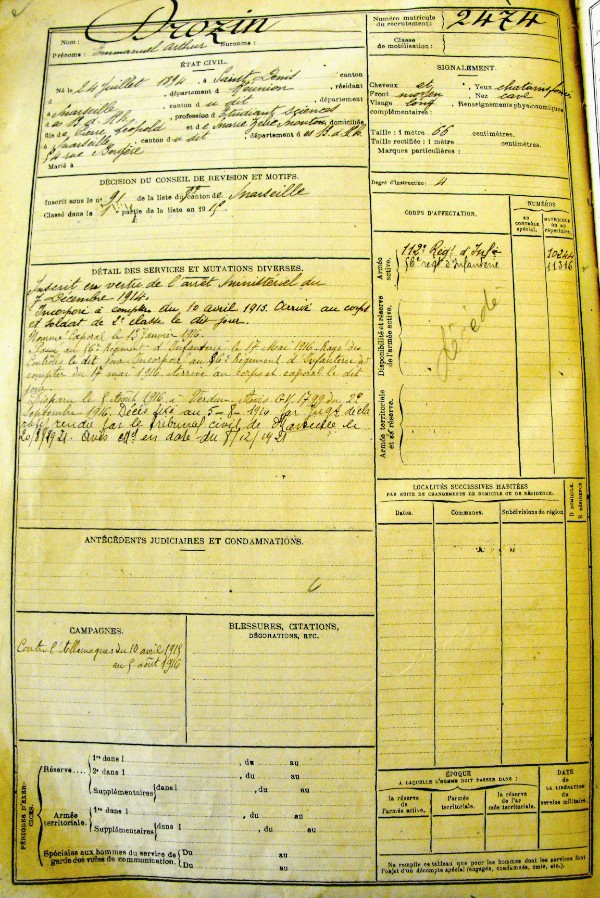 Drozin
Nom :
Prénoms : Emmanuel Arthur Surnoms :
Numéro matricule
du recrutement :
2474
Classe
de mobilisation :
ÉTAT CIVIL.
Né le 24 juillet 1894, à Saint Denis canton
, département d Réunion, résidant
à Marseille canton d u dit, département
d B. d. Rh., profession d'Etudiant sciences
fils de Pierre Léopold et de Marie, domiciliés
à Marseille, canton d u dit, département d B. d. Rh.
54 rue
Marié à
SIGNALEMENT.
Cheveux Yeux
Front moyen Nez cave
Visage long Renseignements physionomiques
complémentaires :
Taille : 1 mètre 66 centimètres.
Taille rectifiée : 1 mètre centimètres.
Marques particulières :
Degré d'instruction : 4
DÉCISION DU CONSEIL DE REVISION ET MOTIFS.
Inscrit sous le n° 91 de la liste du canton de Marseille
Classé dans la 1re partie de la liste en 1915
DÉTAIL DES SERVICES ET MUTATIONS DIVERSES.
Inscrit en vertu de l'arrêt ministériel du
7 Décembre 1914.
Incorporé à compter du 10 avril 1915. Arrivé au corps
et soldat de 2e classe le dit jour.
Nommé Caporal le 13 Janvier 1916.
Passé au 86e Régiment d'Infanterie le 17 Mai 1916. Rayé des
contrôles le dit jour. Incorporé au 86e Régiment d'Infanterie à
compter du 17 mai 1916. Arrivé au corps et caporal le dit
jour.
Disparu le 5 Août 1916 à Verdun. Avis du 2
Septembre 1916. Décès fixé au 5-8-1916 par Jugt décla
ratif rendu par le tribunal civil de Marseille le
20/8/1921. Avis en date du 8/12/1921
CORPS D'AFFECTATION.
NUMÉROS
AU CONTRÔLE spécial.
MATRICULE OU AU RÉPERTOIRE.
Armée active.
112e Regt d'Infie 10244
86e regt d'Infanterie 11316
Disponibilité et réserve de l'armée active.
Décédé
Armée territoriale et sa réserve.
LOCALITÉS SUCCESSIVES HABITÉES
PAR SUITE DE CHANGEMENTS DE DOMICILE OU DE RÉSIDENCE.
Dates. Communes. Subdivisions de région
D DOMICILE.
R RÉSIDENCE
ANTÉCÉDENTS JUDICIAIRES ET CONDAMNATIONS.
CAMPAGNES.
Contre l'Allemagne du 10 avril 1915
au 5 août 1916
BLESSURES, CITATIONS,
DÉCORATIONS, ETC.
PÉRIODES D'EXERCICES.
Réserve....
1re dans l , du au
2e dans l , du au
Supplémentaires dans l , du au
Armée territoriale.
1re dans l , du au
Supplémentaires dans l , du au
Spéciales aux hommes du service de
garde des voies de communication.
Du au
Du au
ÉPOQUE
A LAQUELLE L'HOMME DOIT PASSER DANS :
la réserve de l'armée active.
l'armée territoriale.
la réserve de l'ar mée territoriale.
DATE
DE LA LIBÉRATION
du service militaire.
Ne remplir ce tableau que pour les hommes dont les services font
l'objet d'un décompte spécial (engagés, condamnés, omis, etc.).